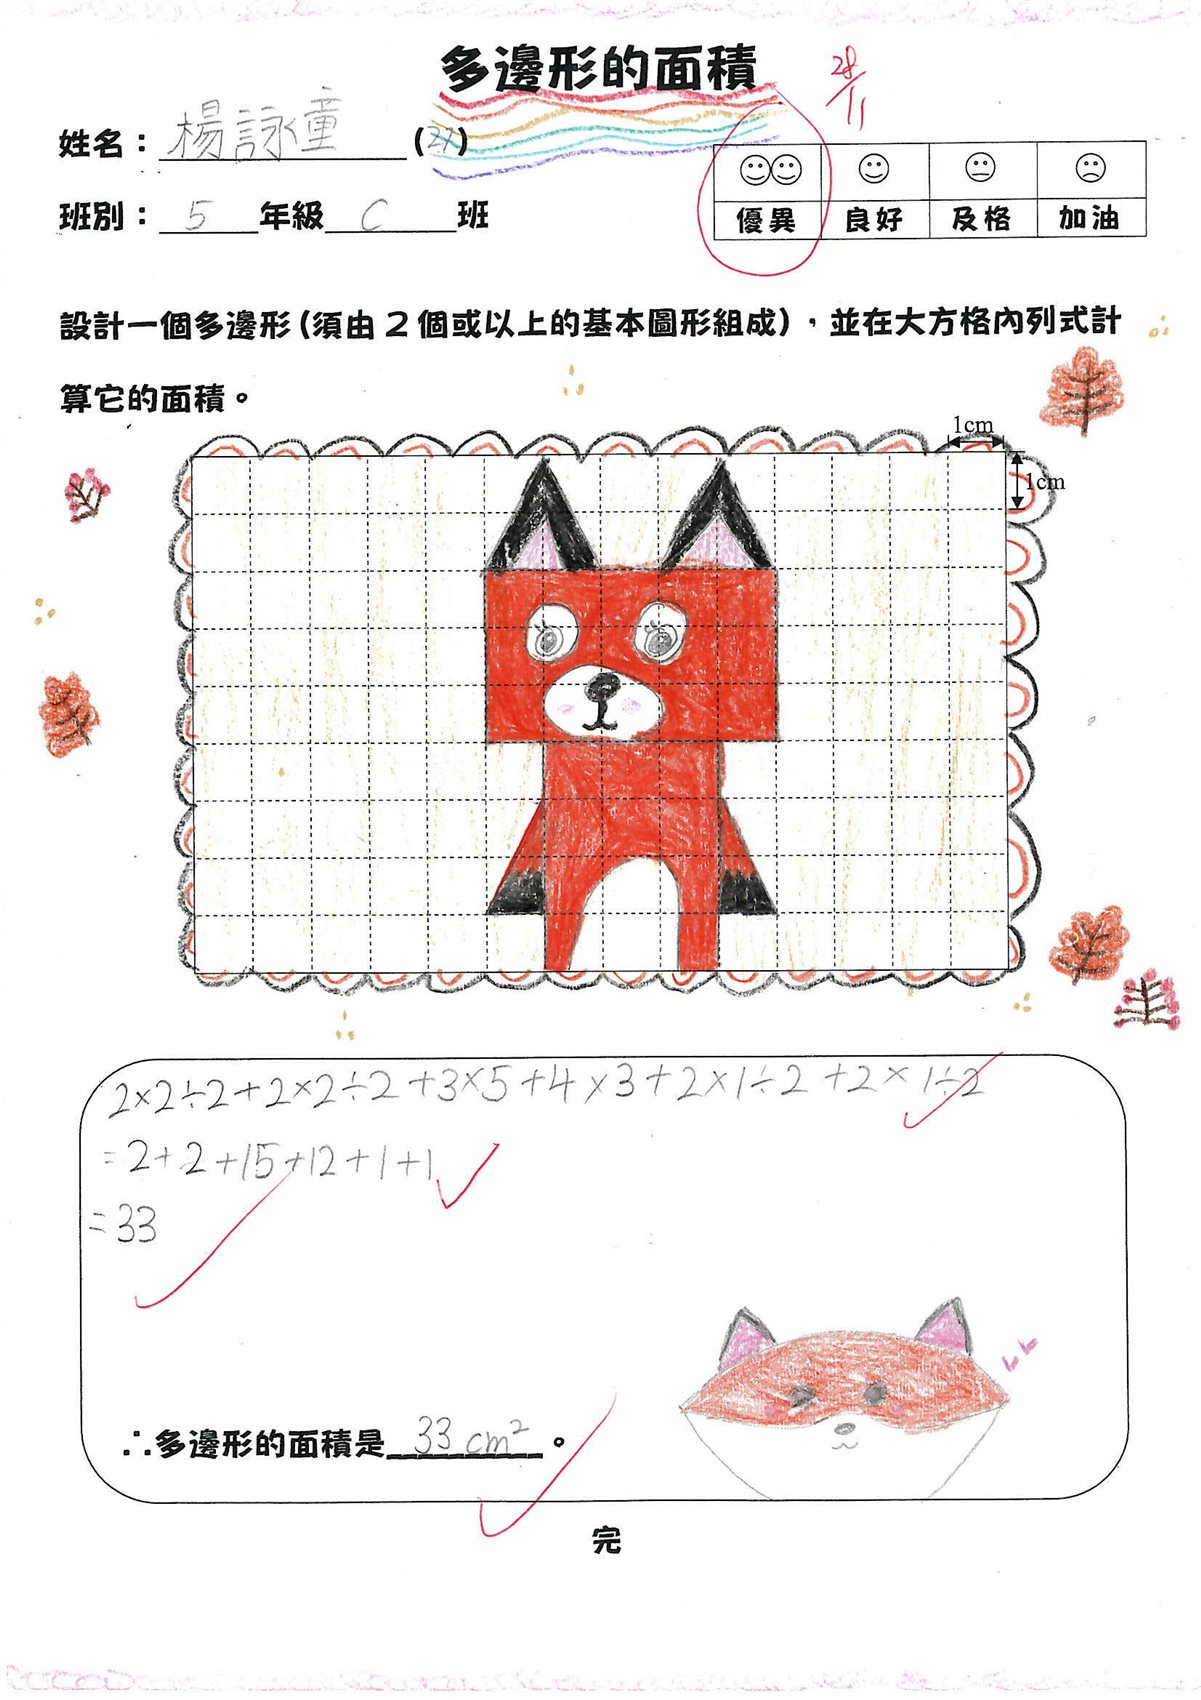 多邊形的面積
28/11
姓名：楊詠童(27)
班別：5年級C班
優異 良好 及格 加油
設計一個多邊形(須由2個或以上的基本圖形組成)，並在大方格內列式計
算它的面積。
1cm
1cm
2×2÷2+2×2÷2+3×5+4×3+2×1÷2+2×1÷2
=2+2+15+12+1+1
=33
∴多邊形的面積是33cm²。
完